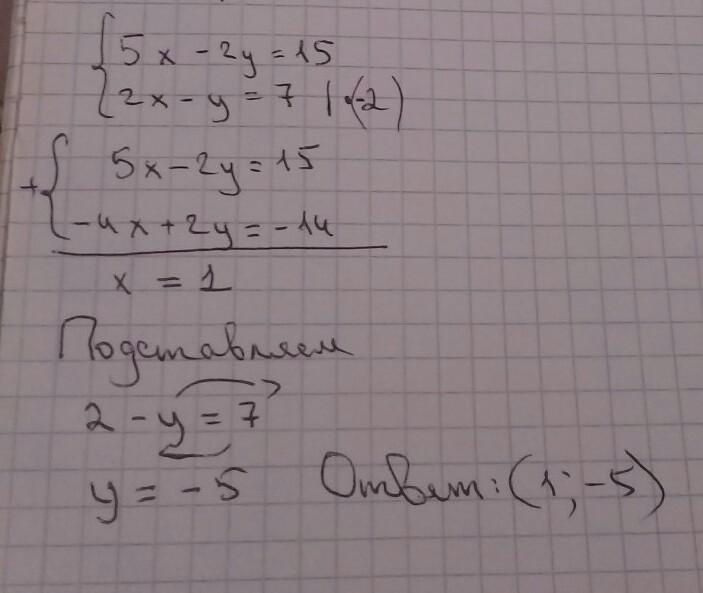 5x - 2y = 15
2x - y = 7 | ·(-2)
5x - 2y = 15
+
-4x + 2y = -14
x = 1
Подставляем
2 - y = 7
y = -5 Ответ: (1; -5)